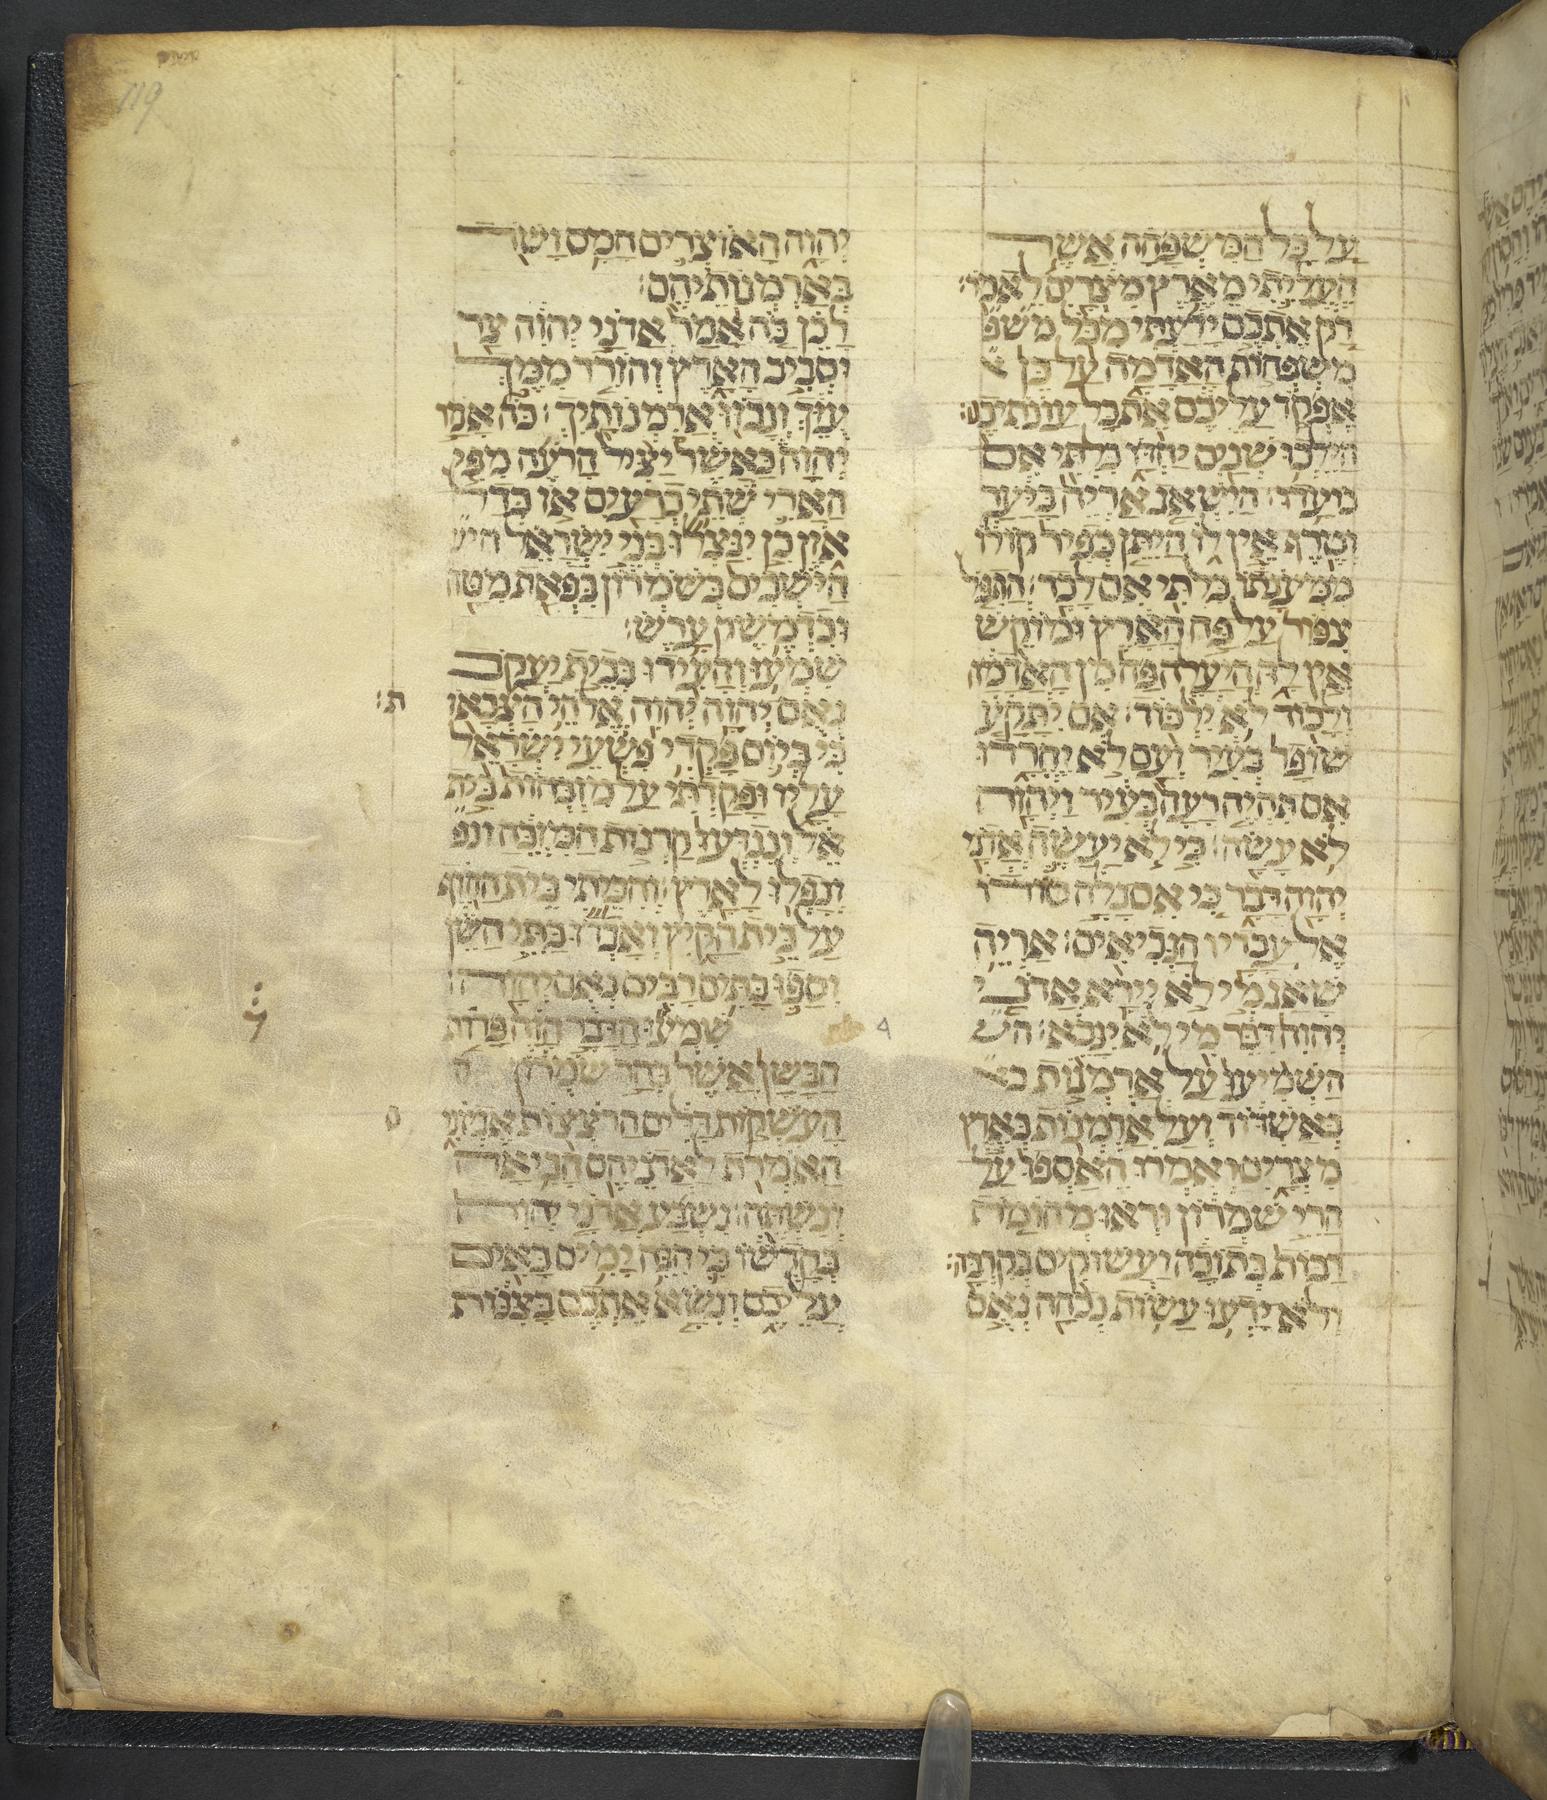 119
על כל המשפחה אשר
העליתי מארץ מצרים לאמר׃
רק אתכם ידעתי מכל משפ
משפחות האדמה על כן
אפקד עליכם את כל עונתיכם׃
הילכו שנים יחדו בלתי אם
נועדו׃ הישאג אריה ביער
וטרף אין לו היתן כפיר קולו
ממענתו בלתי אם לכד׃ התפל
צפור על פח הארץ ומוקש
אין לה היעלה פח מן האדמה
ולכוד לא ילכוד׃ אם יתקע
שופר בעיר ועם לא יחרדו
אם תהיה רעה בעיר ויהוה
לא עשה׃ כי לא יעשה אדני
יהוה דבר כי אם גלה סודו
אל עבדיו הנביאים׃ אריה
שאג מי לא יירא אדני
יהוה דבר מי לא ינבא׃ הש
השמיעו על ארמנות
באשדוד ועל ארמנות בארץ
מצרים ואמרו האספו על
הרי שמרון וראו מהומת
רבות בתוכה ועשוקים בקרבה׃
ולא ידעו עשות נכחה נאם
יהוה האוצרים חמס ושד
בארמנותיהם׃
לכן כה אמר אדני יהוה צר
וסביב הארץ והורד ממך
עזך ונבזו ארמנותיך׃ כה אמר
יהוה כאשר יציל הרעה מפי
הארי שתי כרעים או בדל
אזן כן ינצלו בני ישראל היש
הישבים בשמרון בפאת מטה
ובדמשק ערש׃
שמעו והעידו בבית יעקב
נאם יהוה יהוה אלהי הצבאו
ת׃
כי ביום פקדי פשעי ישראל
עליו ופקדתי על מזבחות בית
אל ונגדעו קרנות המזבח ונפ
ונפלו לארץ׃ והכיתי בית החורף
על בית הקיץ ואבדו בתי השן
וספו בתים רבים נאם יהוה׃
שמעו הדבר הזה פרות
הבשן אשר בהר שמרון
העשקות דלים הרצצות אביוני
האמרת לאדניהם הביאה
ונשתה׃ נשבע אדני יהוה
בקדשו כי הנה ימים באים
עליכם ונשא אתכם בצנות